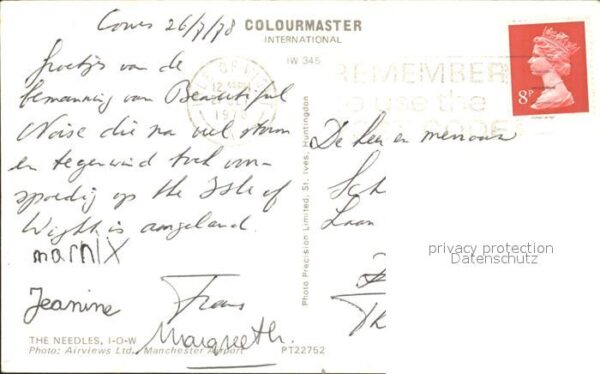 Cowes 26/7/78
COLOURMASTER
INTERNATIONAL
IW 345
Groetjes van de
bemanning van Beautiful
Noise die na veel storm
en tegenwind toch voor-
spoedig op the Isle of
Wight is aangeland.
marnix
Jeanine Frans
Margreeth.
THE NEEDLES, I-O-W
Photo: Airviews Ltd., Manchester Airport
PT22752
Photo Precision Limited, St. Ives, Huntingdon
ISLE OF
12
1978
REMEMBER
to use the
8P
De heer en mevrouw
Sch
Laan
Th
privacy protection
Datenschutz